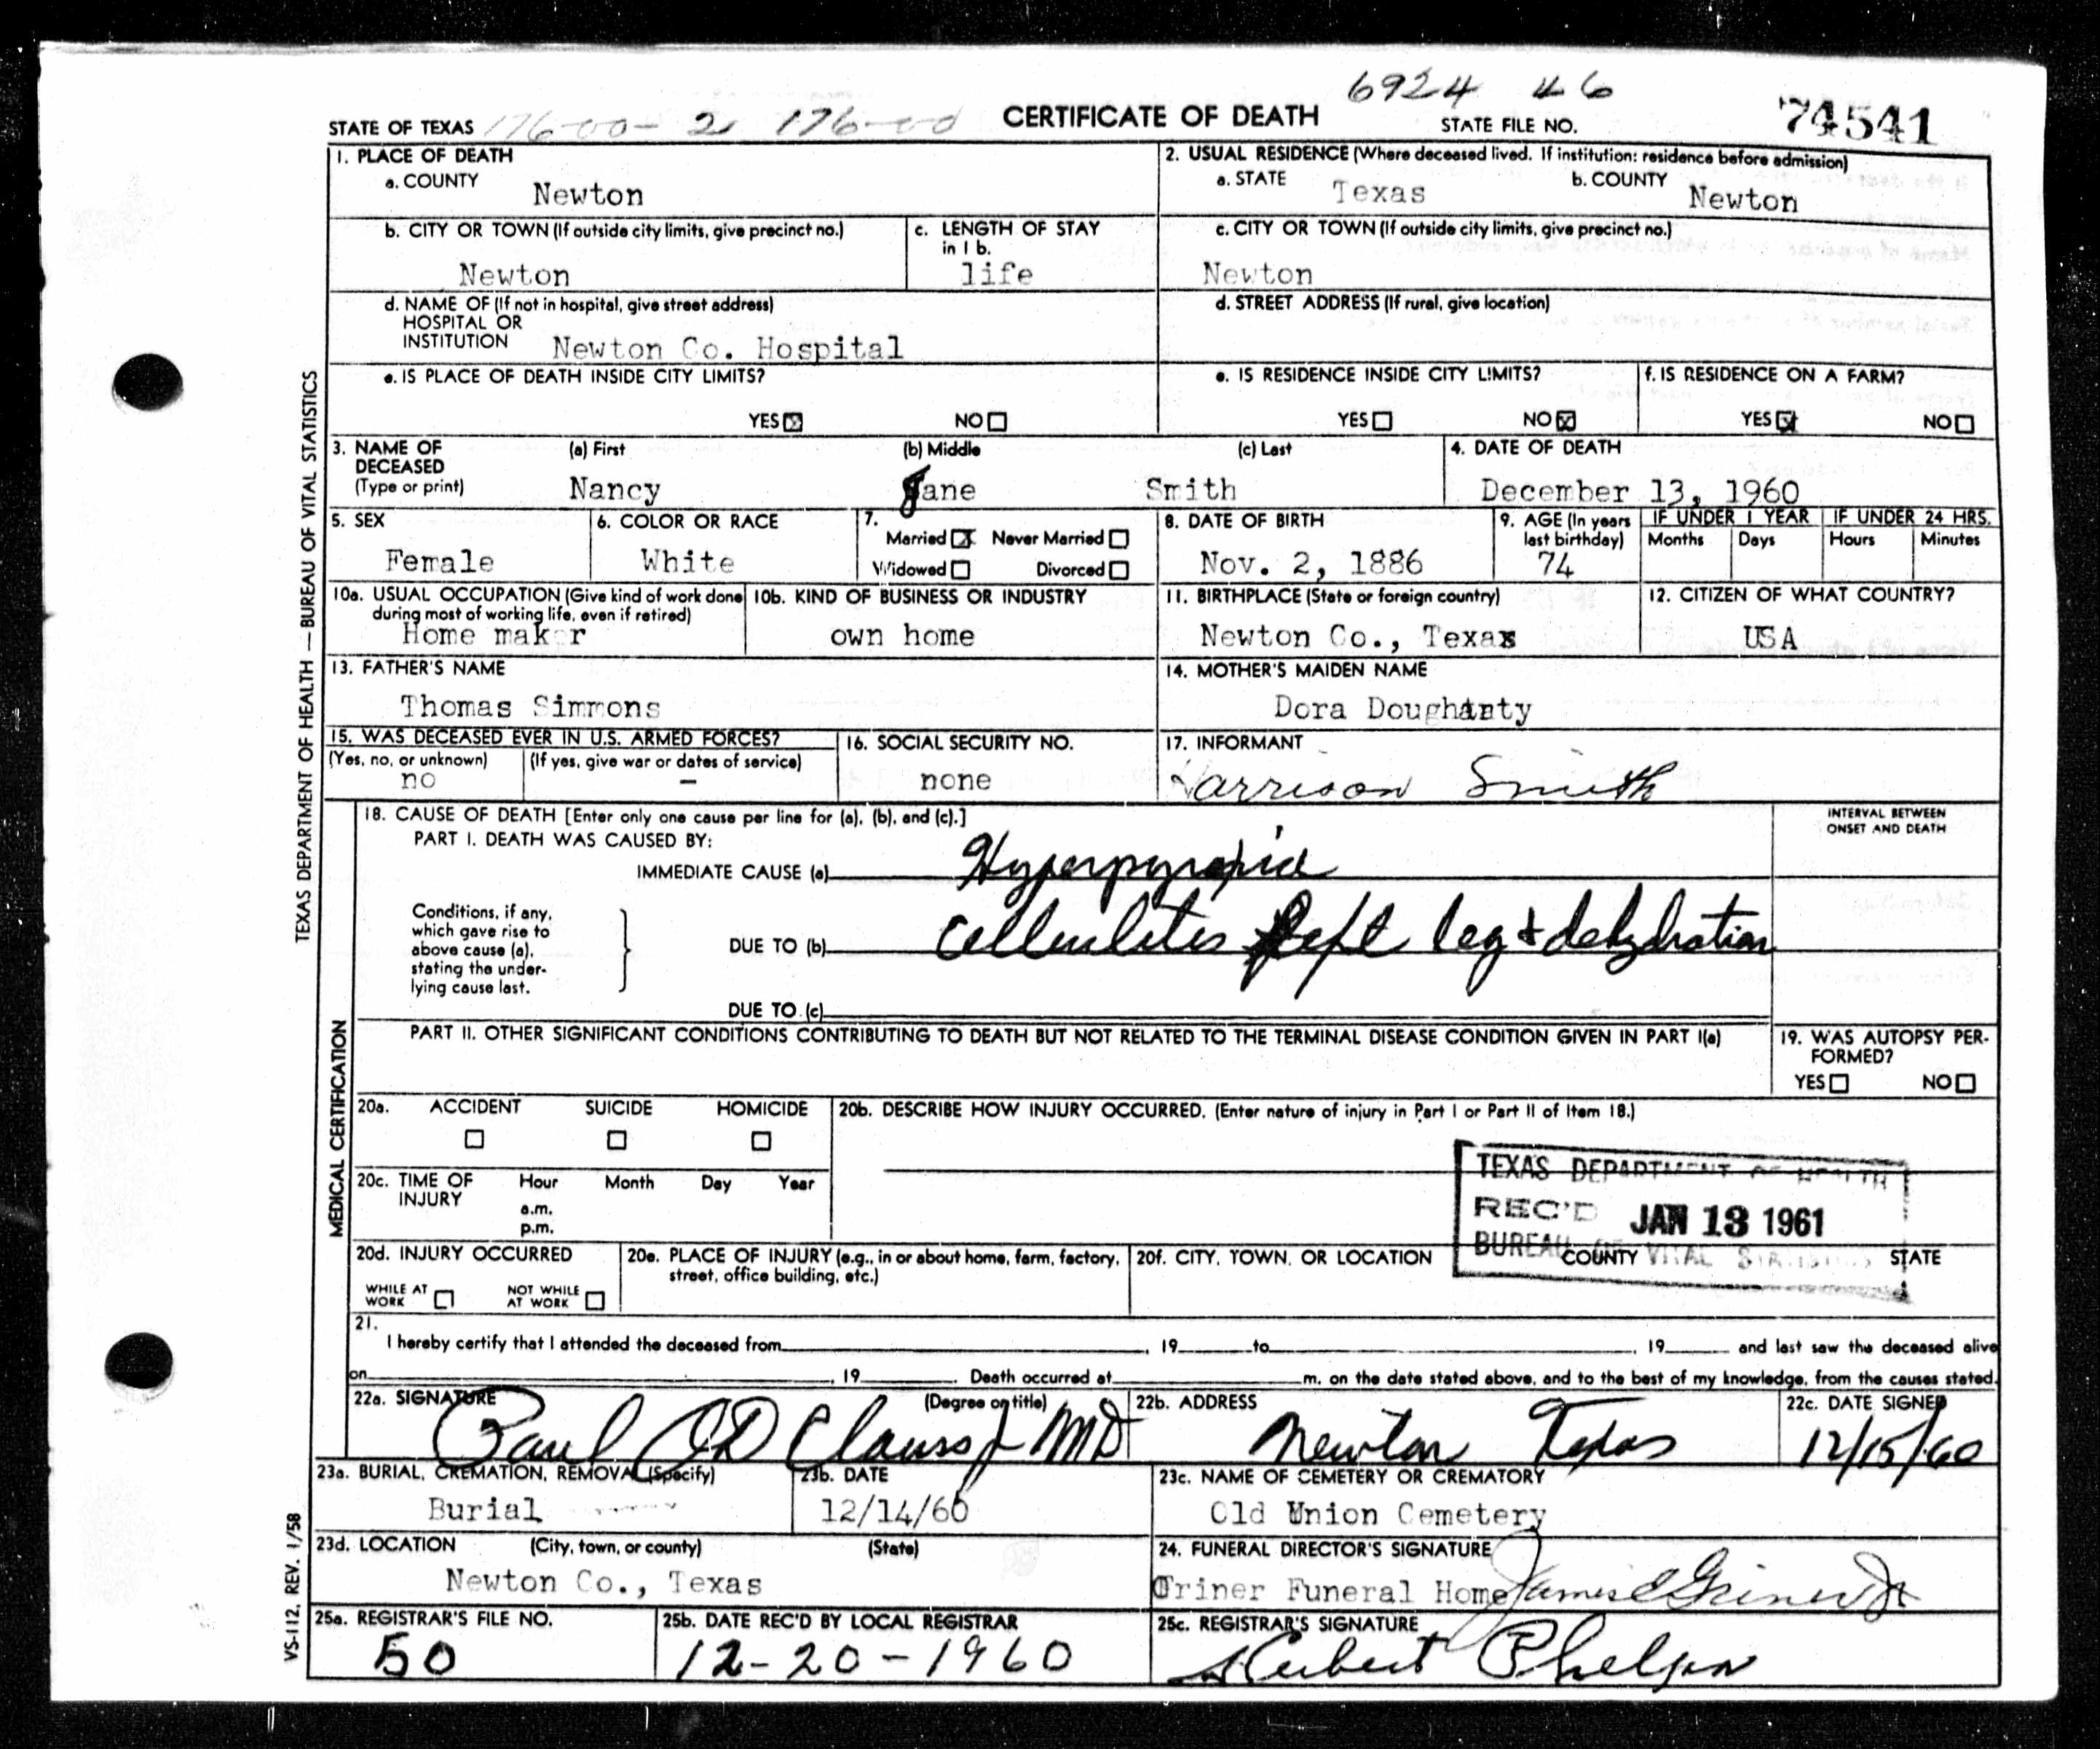 6924 46
STATE OF TEXAS 176-00- 2 176-00 CERTIFICATE OF DEATH STATE FILE NO. 74541
1. PLACE OF DEATH
a. COUNTY Newton
2. USUAL RESIDENCE (Where deceased lived. If institution: residence before admission)
a. STATE Texas b. COUNTY Newton
b. CITY OR TOWN (If outside city limits, give precinct no.) Newton
c. LENGTH OF STAY in 1 b. life
c. CITY OR TOWN (If outside city limits, give precinct no.) Newton
d. NAME OF (If not in hospital, give street address)
HOSPITAL OR
INSTITUTION Newton Co. Hospital
d. STREET ADDRESS (If rural, give location)
e. IS PLACE OF DEATH INSIDE CITY LIMITS?
YES☒ NO☐
e. IS RESIDENCE INSIDE CITY LIMITS?
YES☐ NO☒
f. IS RESIDENCE ON A FARM?
YES☒ NO☐
3. NAME OF DECEASED (Type or print)
(a) First Nancy (b) Middle Jane (c) Last Smith
4. DATE OF DEATH December 13, 1960
5. SEX Female
6. COLOR OR RACE White
7. Married ☒ Never Married ☐
Widowed ☐ Divorced ☐
8. DATE OF BIRTH Nov. 2, 1886
9. AGE (In years last birthday) 74
IF UNDER 1 YEAR Months Days
IF UNDER 24 HRS. Hours Minutes
10a. USUAL OCCUPATION (Give kind of work done during most of working life, even if retired)
Home maker
10b. KIND OF BUSINESS OR INDUSTRY own home
11. BIRTHPLACE (State or foreign country) Newton Co., Texas
12. CITIZEN OF WHAT COUNTRY? USA
13. FATHER'S NAME Thomas Simmons
14. MOTHER'S MAIDEN NAME Dora
15. WAS DECEASED EVER IN U.S. ARMED FORCES?
(Yes, no, or unknown) no (If yes, give war or dates of service) –
16. SOCIAL SECURITY NO. none
17. INFORMANT Harrison Smith
18. CAUSE OF DEATH [Enter only one cause per line for (a), (b), and (c).]
INTERVAL BETWEEN ONSET AND DEATH
PART I. DEATH WAS CAUSED BY:
IMMEDIATE CAUSE (a) Hyperpyrexia
Conditions, if any, which gave rise to above cause (a), stating the underlying cause last.
DUE TO (b) Cellulites Left leg & dehydration
DUE TO (c)
PART II. OTHER SIGNIFICANT CONDITIONS CONTRIBUTING TO DEATH BUT NOT RELATED TO THE TERMINAL DISEASE CONDITION GIVEN IN PART I(a)
19. WAS AUTOPSY PERFORMED?
YES☐ NO☐
20a. ACCIDENT ☐ SUICIDE ☐ HOMICIDE ☐
20b. DESCRIBE HOW INJURY OCCURRED. (Enter nature of injury in Part I or Part II of Item 18.)
20c. TIME OF INJURY Hour Month Day Year
a.m.
p.m.
TEXAS DEPARTMENT OF HEALTH
REC'D JAN 13 1961
BUREAU OF VITAL STATISTICS
20d. INJURY OCCURRED
WHILE AT WORK ☐ NOT WHILE AT WORK ☐
20e. PLACE OF INJURY (e.g., in or about home, farm, factory, street, office building, etc.)
20f. CITY, TOWN, OR LOCATION COUNTY STATE
21.
I hereby certify that I attended the deceased from , 19 to , 19 and last saw the deceased alive
on , 19 . Death occurred at m. on the date stated above, and to the best of my knowledge, from the causes stated.
22a. SIGNATURE (Degree or title) Paul MD
22b. ADDRESS Newton Texas
22c. DATE SIGNED 12/15/60
23a. BURIAL, CREMATION, REMOVAL (Specify) Burial
23b. DATE 12/14/60
23c. NAME OF CEMETERY OR CREMATORY Old Union Cemetery
23d. LOCATION (City, town, or county) (State)
Newton Co., Texas
24. FUNERAL DIRECTOR'S SIGNATURE
Funeral Home James E Griner Jr
25a. REGISTRAR'S FILE NO. 50
25b. DATE REC'D BY LOCAL REGISTRAR 12-20-1960
25c. REGISTRAR'S SIGNATURE Herbert Phelps
TEXAS DEPARTMENT OF HEALTH — BUREAU OF VITAL STATISTICS
MEDICAL CERTIFICATION
VS-112, REV. 1/58